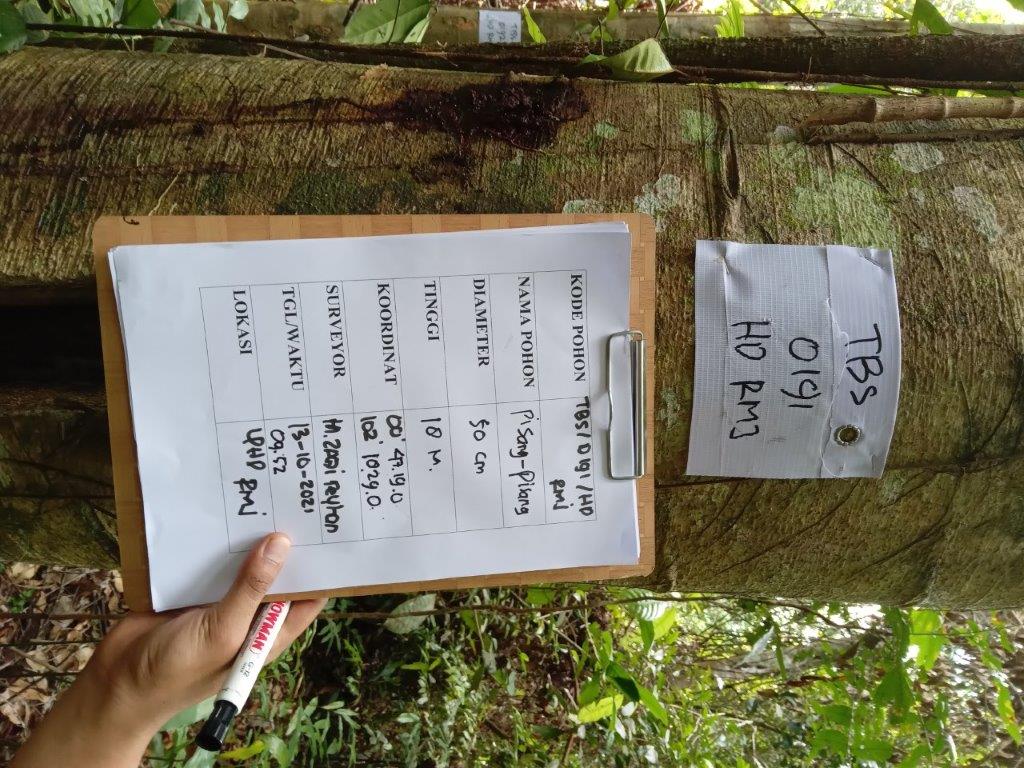 TBS
0191
HD RMJ
KODE POHON TBS/0191/HD
RMJ
NAMA POHON Pisang-Pisang
DIAMETER 50 cm
TINGGI 18 M.
KOORDINAT 00° 47.19.0
102° 10.29.0.
SURVEYOR M. ZAQI Reyhan
TGL/WAKTU 13-10-2021
09.52
LOKASI LPHD RMJ
TBS
0192
HD RMJ
SNOWMAN
G-12